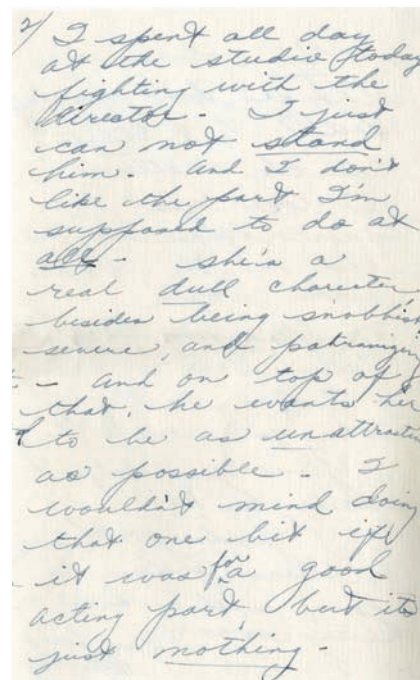 2/ I spent all day
at the studio today
fighting with the
director - I just
can not stand
him - And I don't
like the part I'm
supposed to do at
all - she's a
real dull charecter
besides being snobbish
severe, and patronizing
- and on top of
that, he wants her
to be as unattractive
as possible - I
wouldn't mind doing
that one bit if
it was for a good
acting part, but its
just nothing -